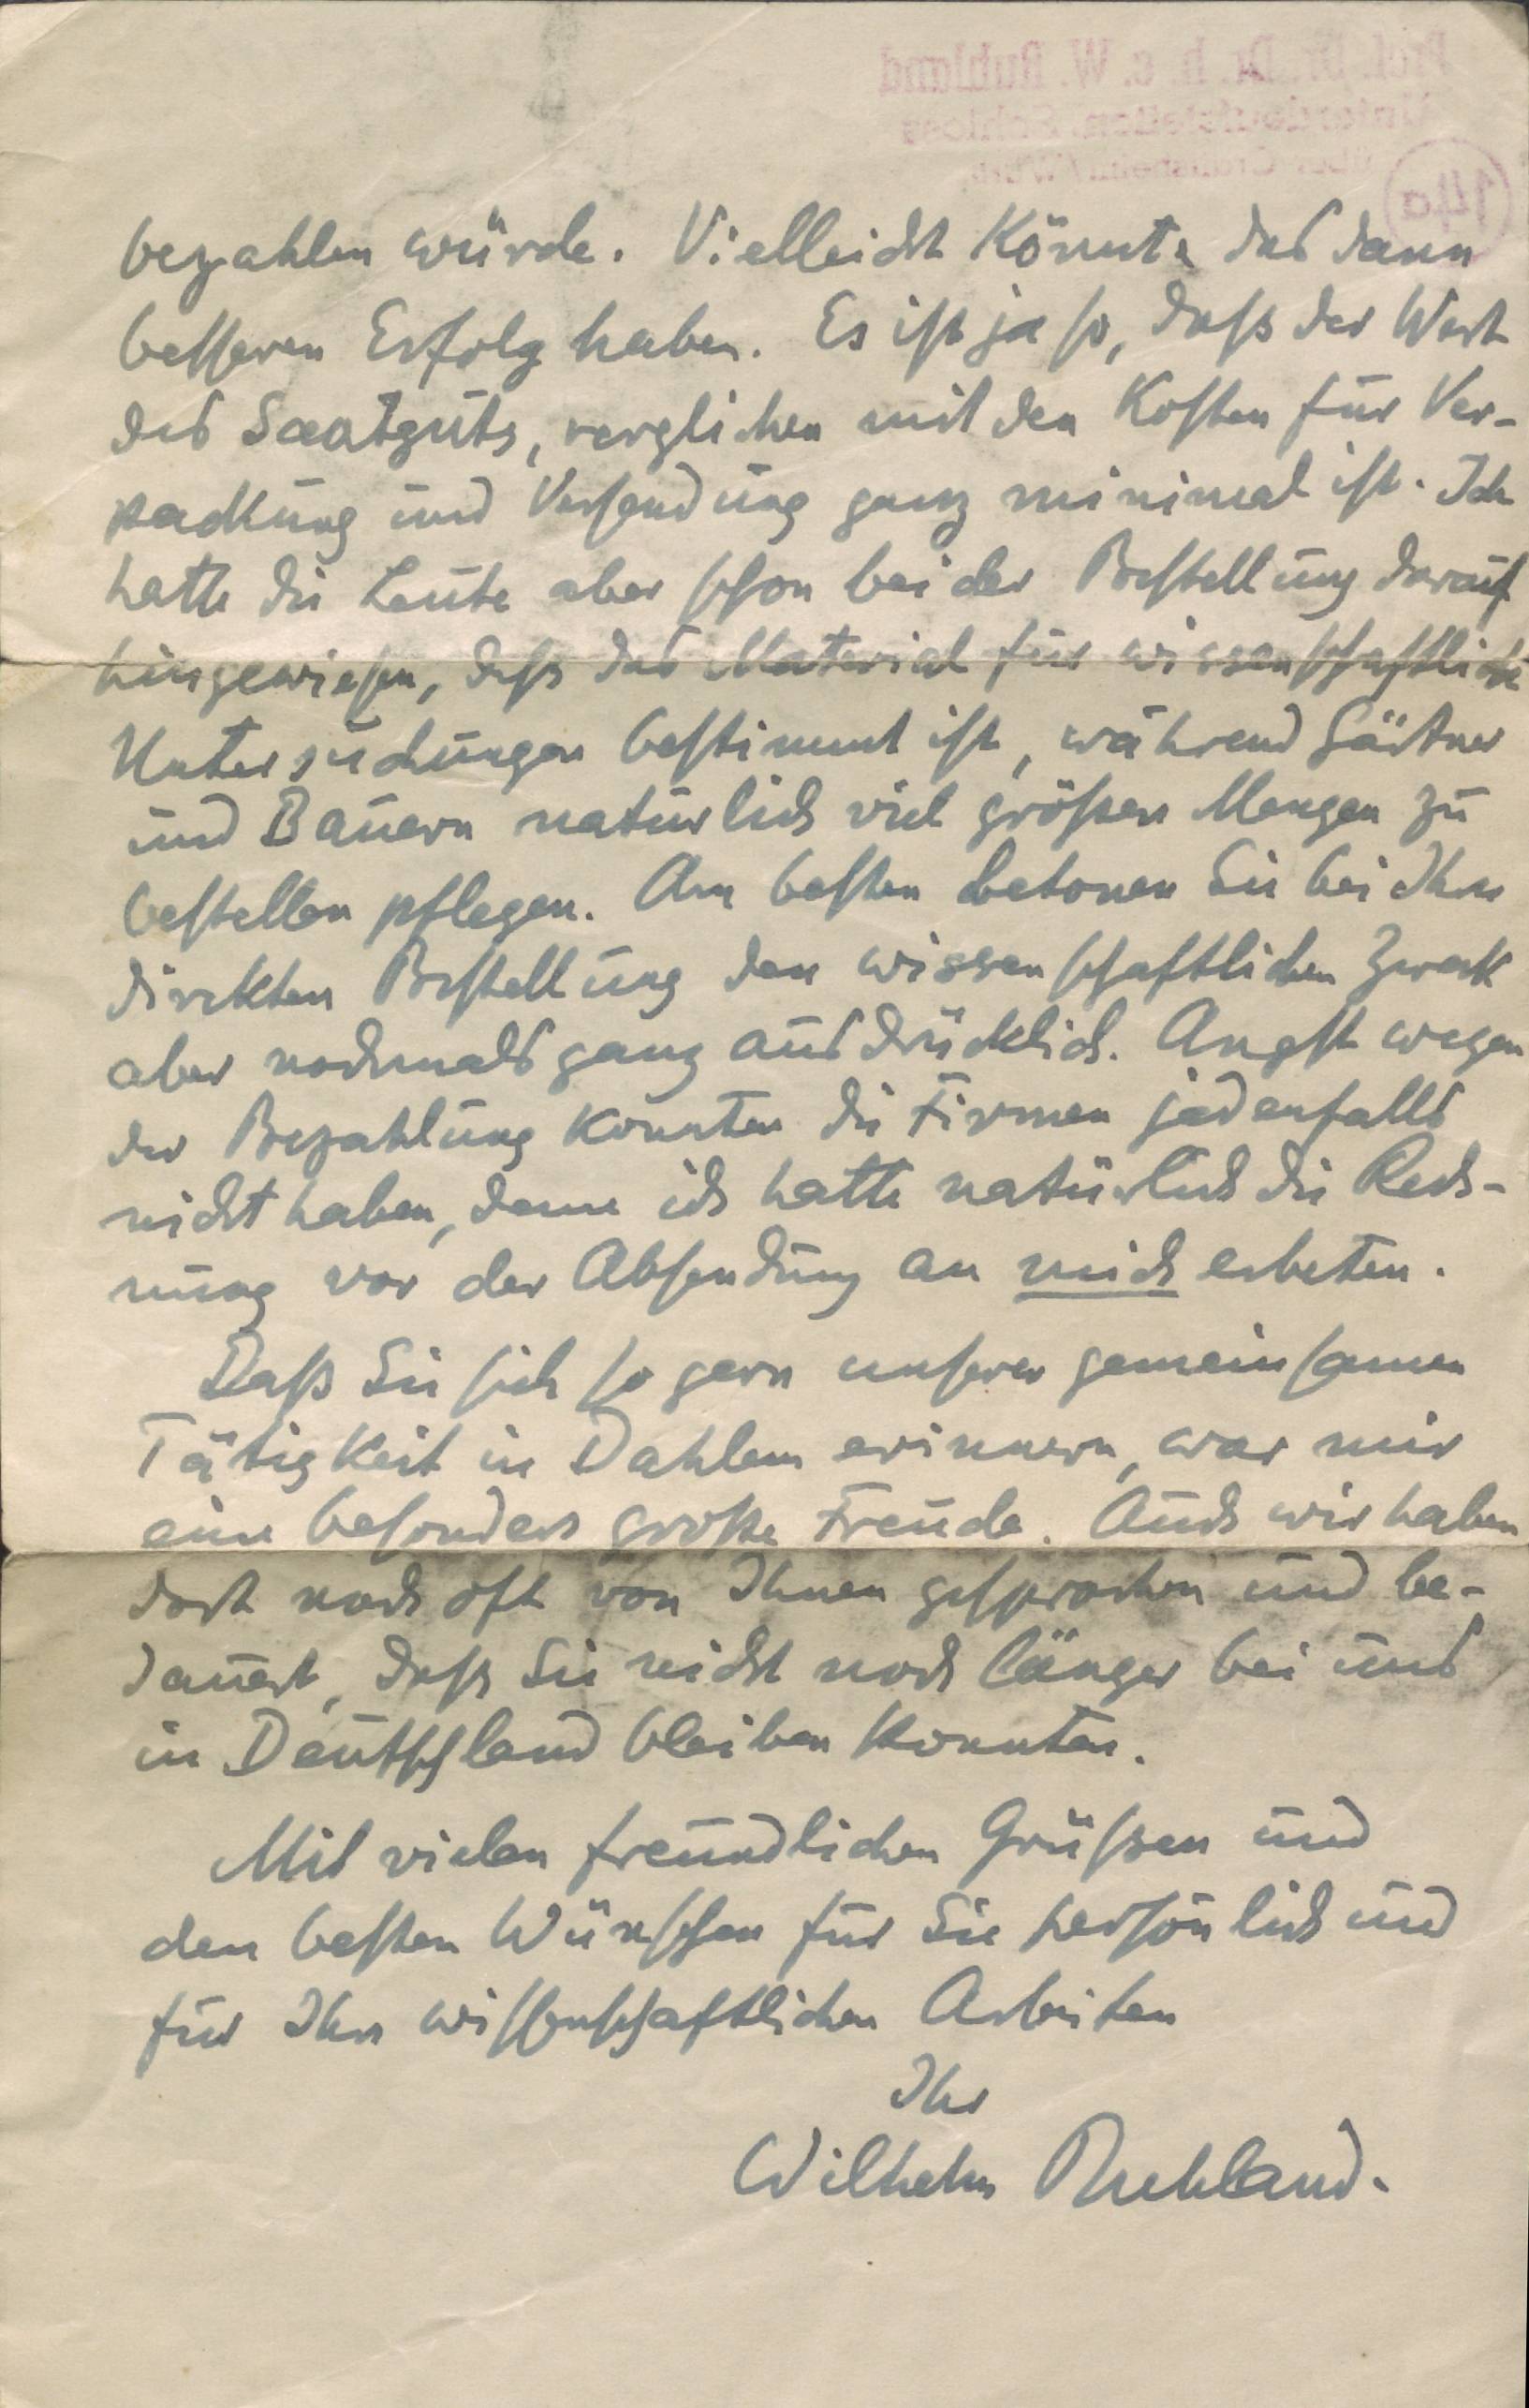 Prof. Dr. Dr. h. c. W. Ruhland
Unterdeufstetten, Schloss
über Crailsheim/Württ.
14a
bezahlen würde. Vielleicht könnte das dann
besseren Erfolg haben. Es ist ja so, daß der Wert
des Saatguts, verglichen mit den Kosten für Ver-
packung und Versendung ganz minimal ist. Ich
hatte die Leute aber schon bei der Bestellung darauf
hingewiesen, daß das Material für wissenschaftliche
Untersuchungen bestimmt ist, während Gärtner
und Bauern natürlich viel größere Mengen zu
bestellen pflegen. Am besten betonen Sie bei Ihrer
direkten Bestellung den wissenschaftlichen Zweck
aber nochmals ganz ausdrücklich. Angst wegen
der Bezahlung konnten die Firmen jedenfalls
nicht haben, denn ich hatte natürlich die Rech-
nung vor der Absendung an mich erbeten.
Daß Sie sich so gern unserer gemeinsamen
Tätigkeit in Dahlem erinnern, war mir
eine besonders große Freude. Auch wir haben
dort noch oft von Ihnen gesprochen und be-
dauert, daß Sie nicht noch länger bei uns
in Deutschland bleiben konnten.
Mit vielen freundlichen Grüßen und
den besten Wünschen für Sie persönlich und
für Ihre wissenschaftlichen Arbeiten
Ihr
Wilhelm Ruhland.